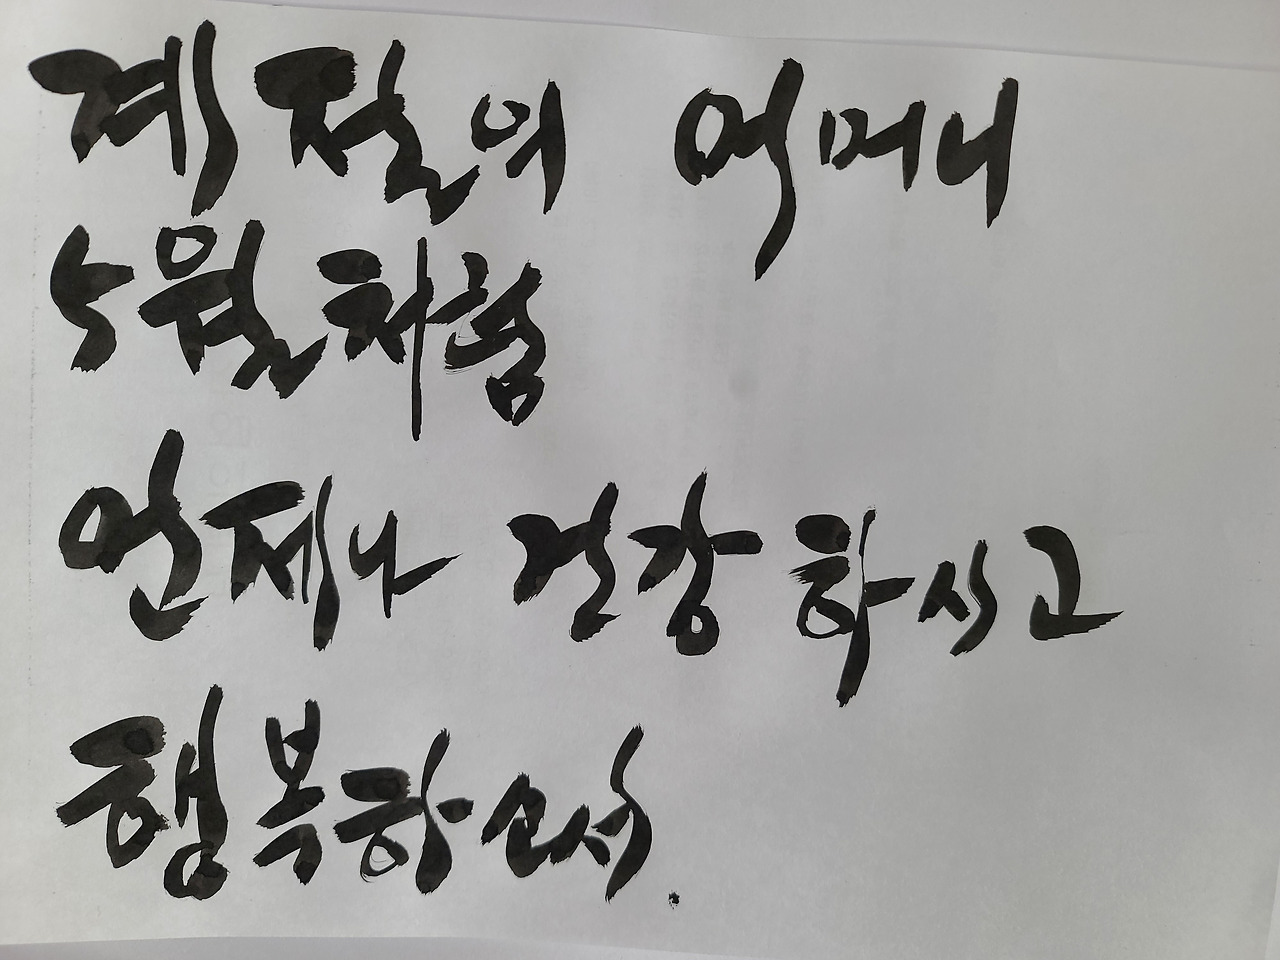 계절의 어머니
5월처럼
언제나 건강하시고
행복하소서.